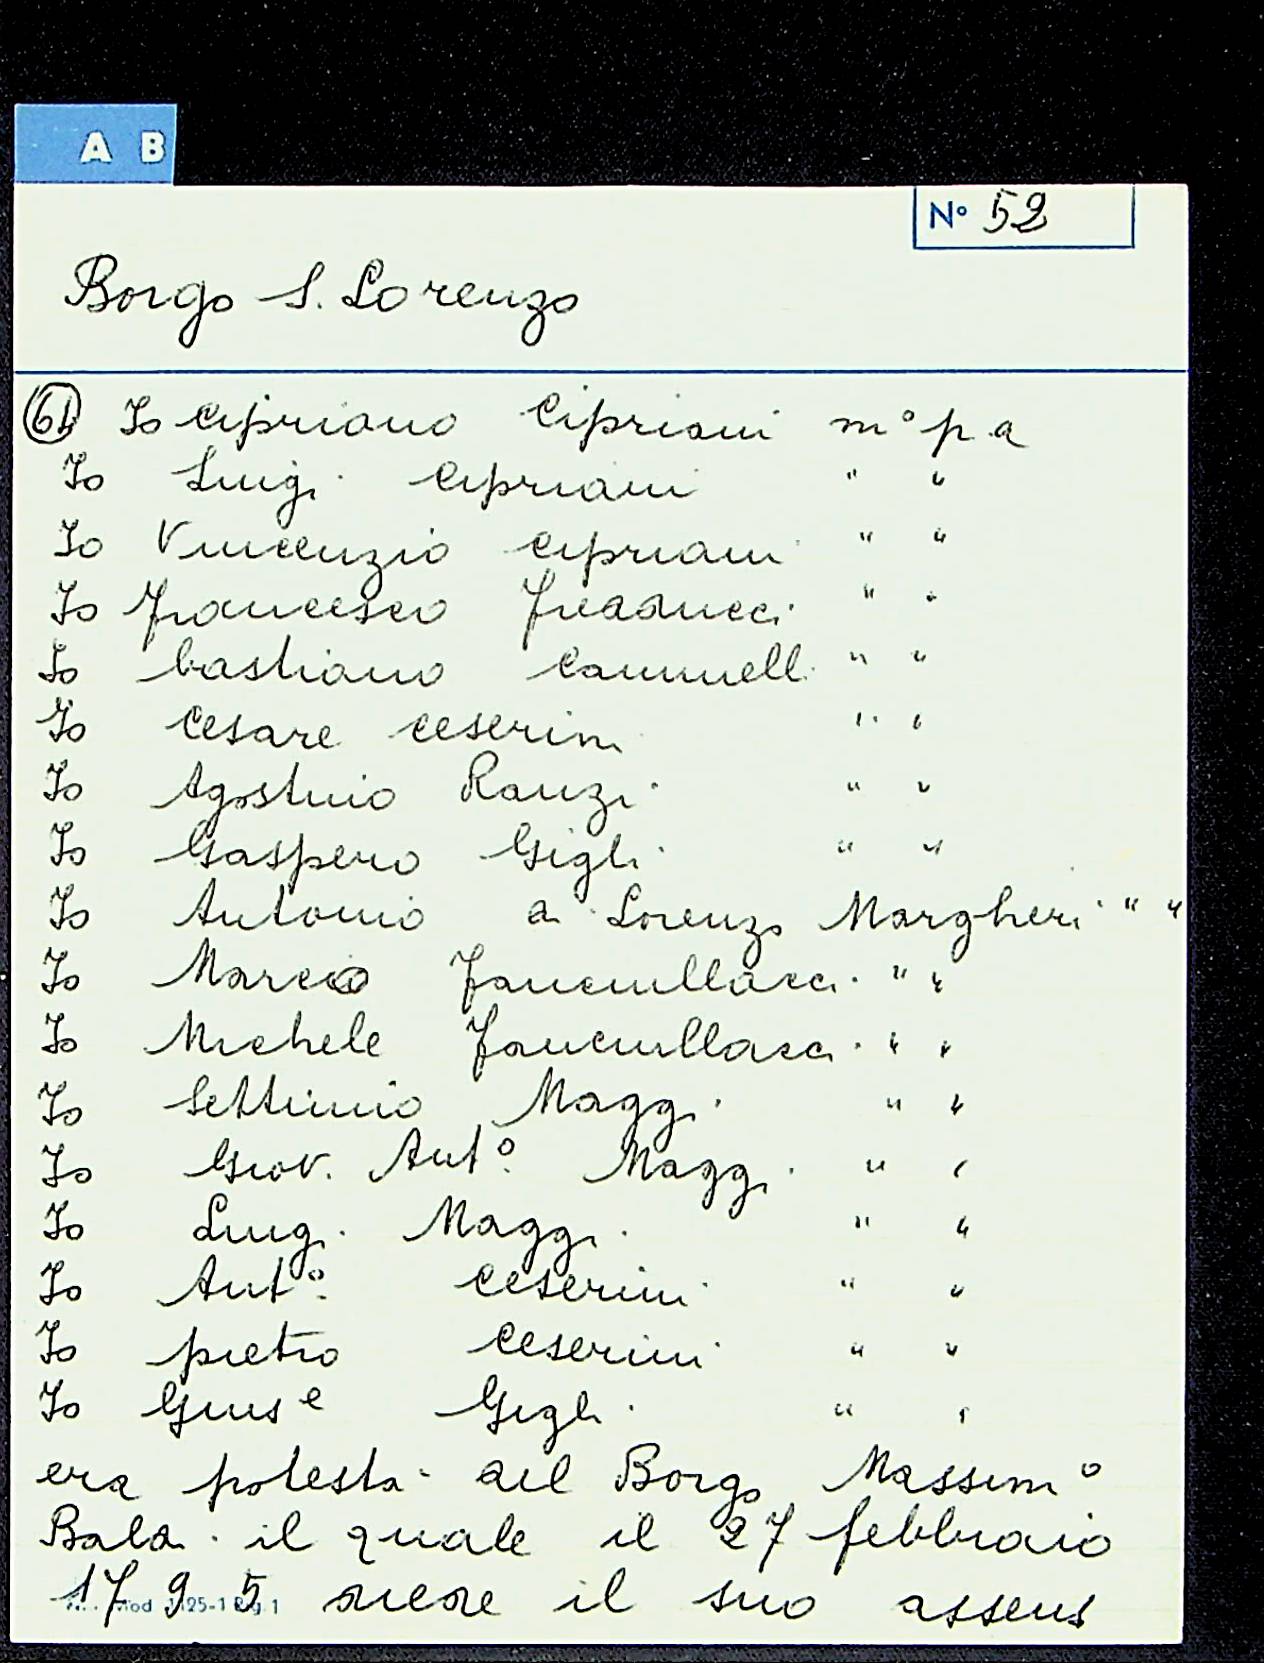 A B
N° 52
Borgo S. Lorenzo
Io Cipriano Cipriani m° p a
Io Luigi Cipriani " "
Io Vincenzio Cipriani " "
Io Francesco " "
Io bastiano " "
Io Cesare Ceserini " "
Io Agostino Ranzi " "
Io Gaspero Gigli " "
Io Antonio di Lorenzo Margheri " "
Io Marco Fanciullacci " "
Io Michele Fanciullacci " "
Io Settimio Maggi " "
Io Giov. Ant° Maggi " "
Io Luigi Maggi " "
Io Ant° Ceserini " "
Io pietro Ceserini " "
Io Gius e Gigli " "
era potestà del Borgo Massim°
il quale il 27 febbraio
1795 diede il suo assens